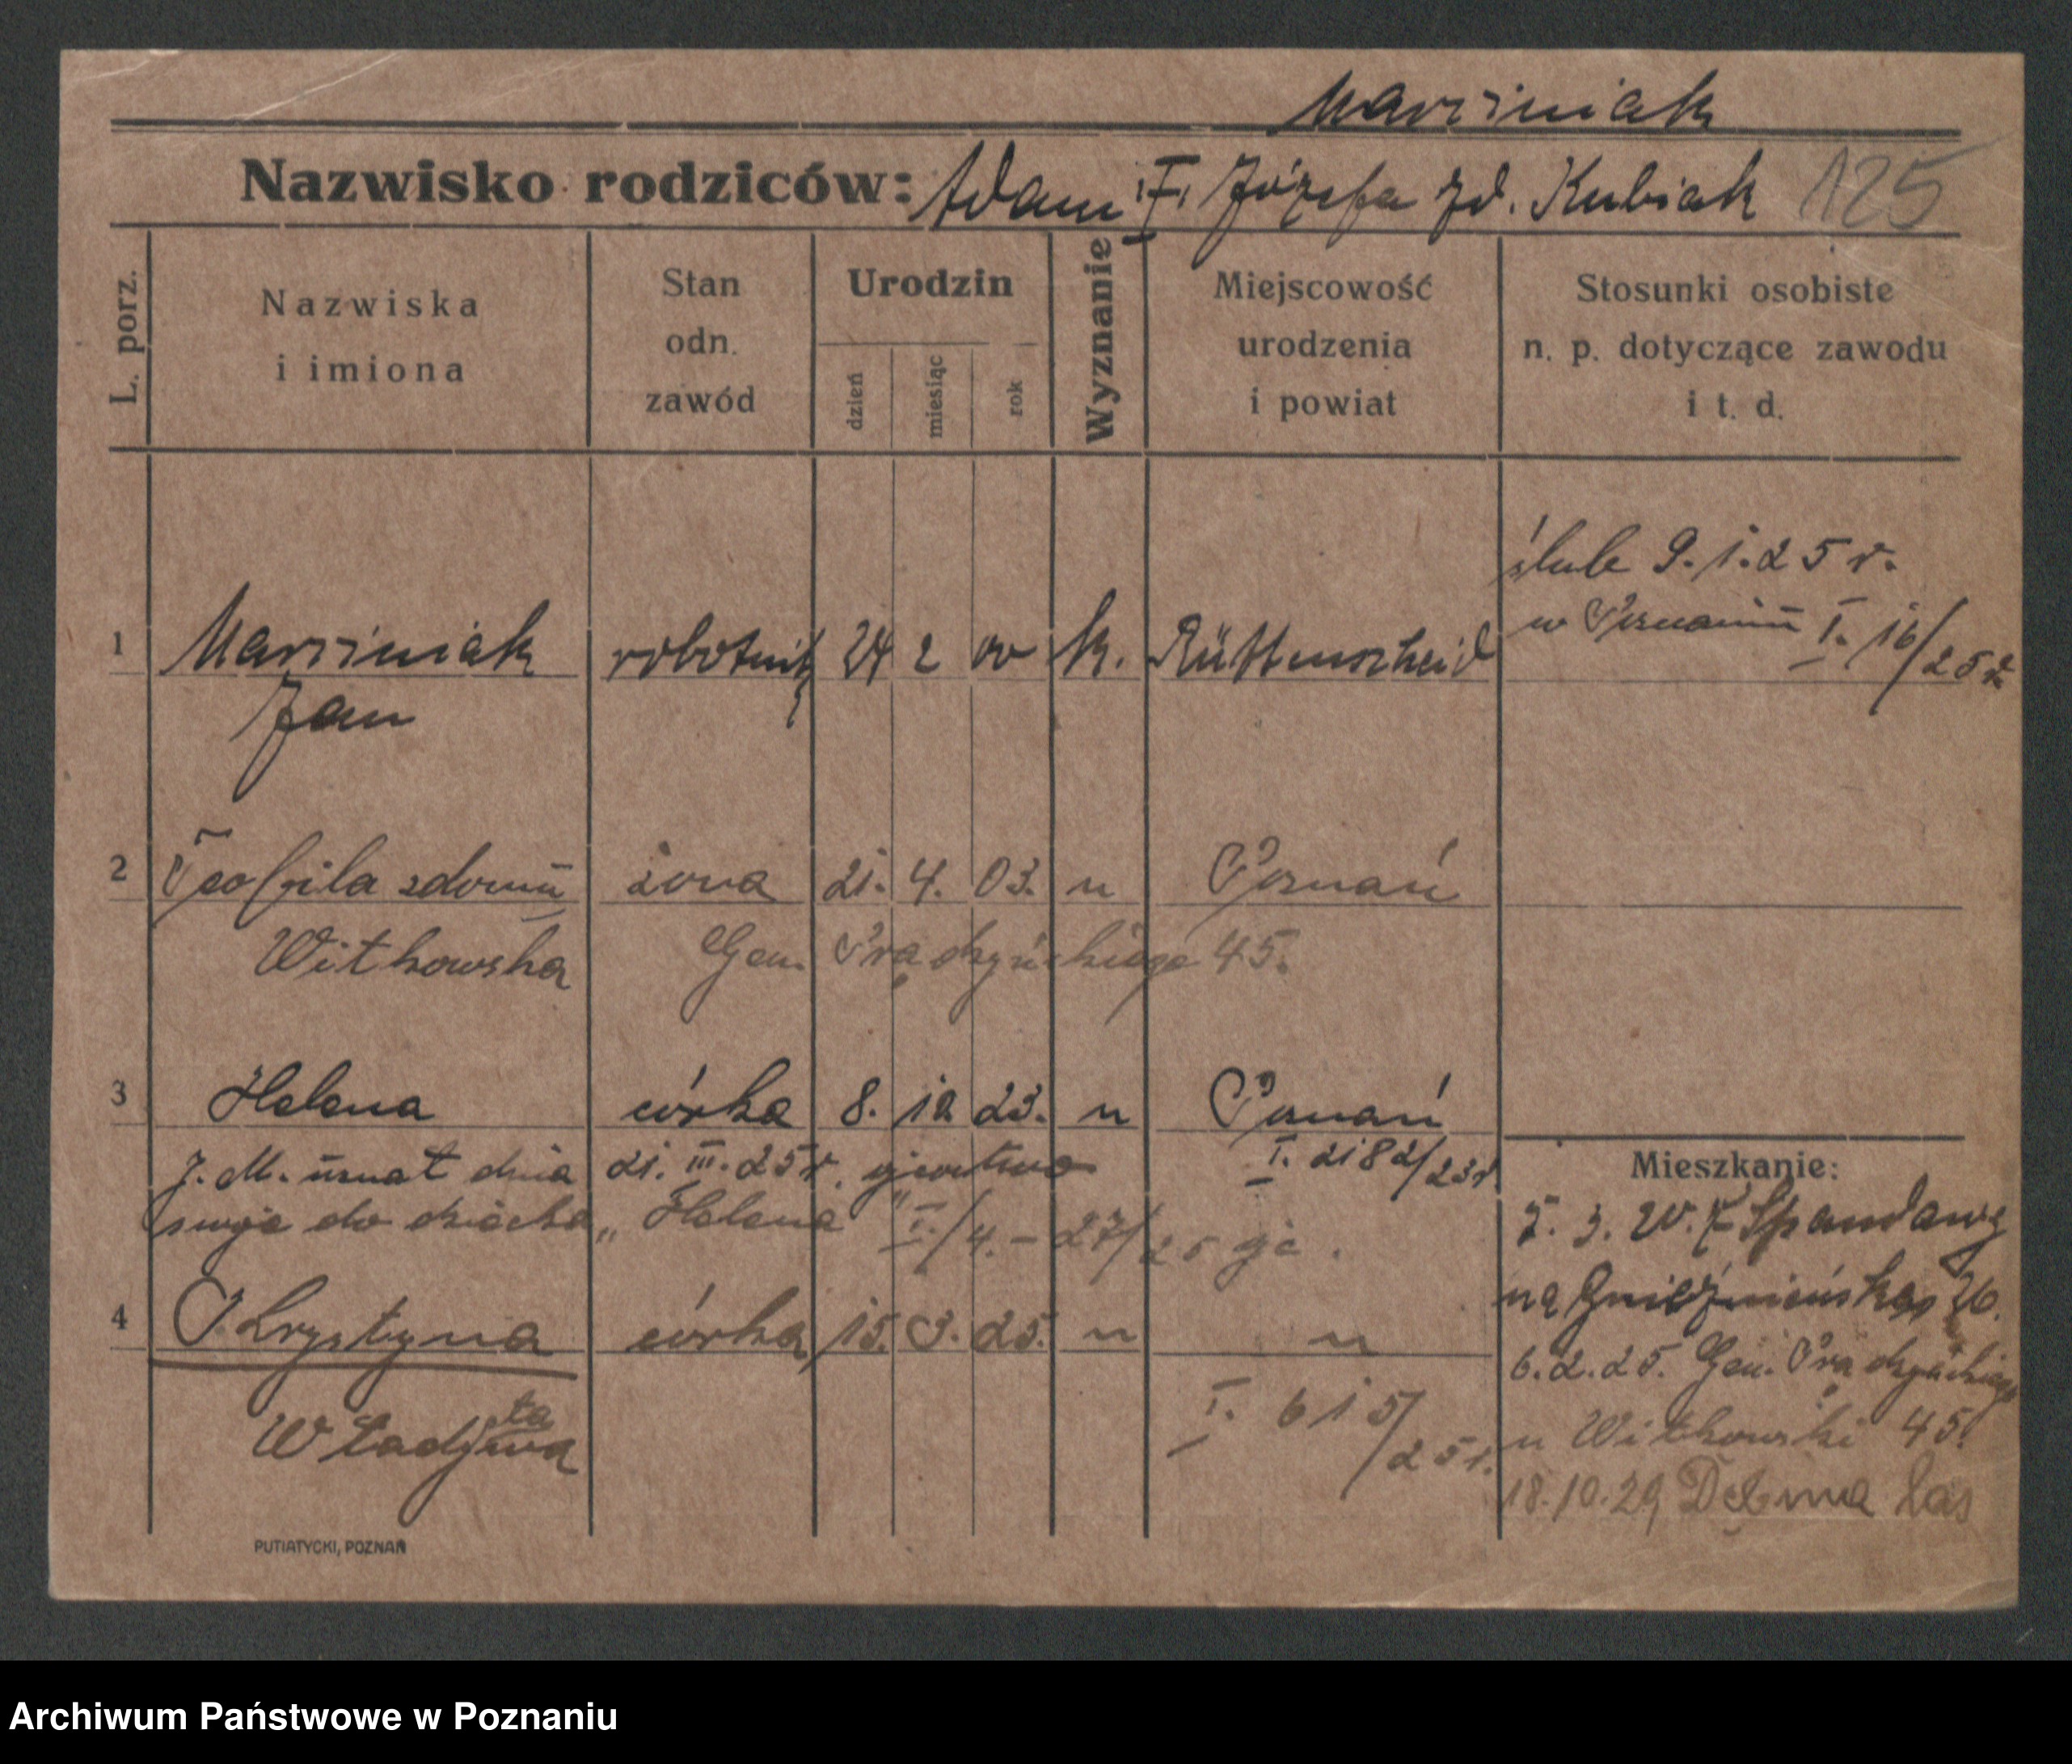 Marciniak
Nazwisko rodziców: Adam i Józefa zd. Kubiak 125
L. porz.
Nazwiska
i imiona
Stan
odn.
zawód
Urodzin
dzień
miesiąc
rok
Wyznanie
Miejscowość
urodzenia
i powiat
Stosunki osobiste
n. p. dotyczące zawodu
i t. d.
ślub 9.1.25 r.
w Poznaniu I. 16/25 r.
1 Marciniak robotnik 24 2 00 k. Rüttenscheid
Jan
2 Teofila z domu żona 21. 4. 03. " Poznań
Witkowska Gen. Prądzyńskiego 45.
3 Helena córka 8. 12 23. " Poznań
I. 2182/23 r
J. M. uznał dnia 21. III. 25 r. ojcostwo
swoje do dziecka „Helena" I./4. - 27/25
4 Krystyna córka 15. 3. 25. " "
Władysława
ta
I. 615/25 r.
Mieszkanie:
Spandawy
na Gnieźnieńska 26.
6.2.25. Gen. Prądzyńskiego
u Witkowski 45.
18.10.29 Dębina las
PUTIATYCKI, POZNAŃ
Archiwum Państwowe w Poznaniu